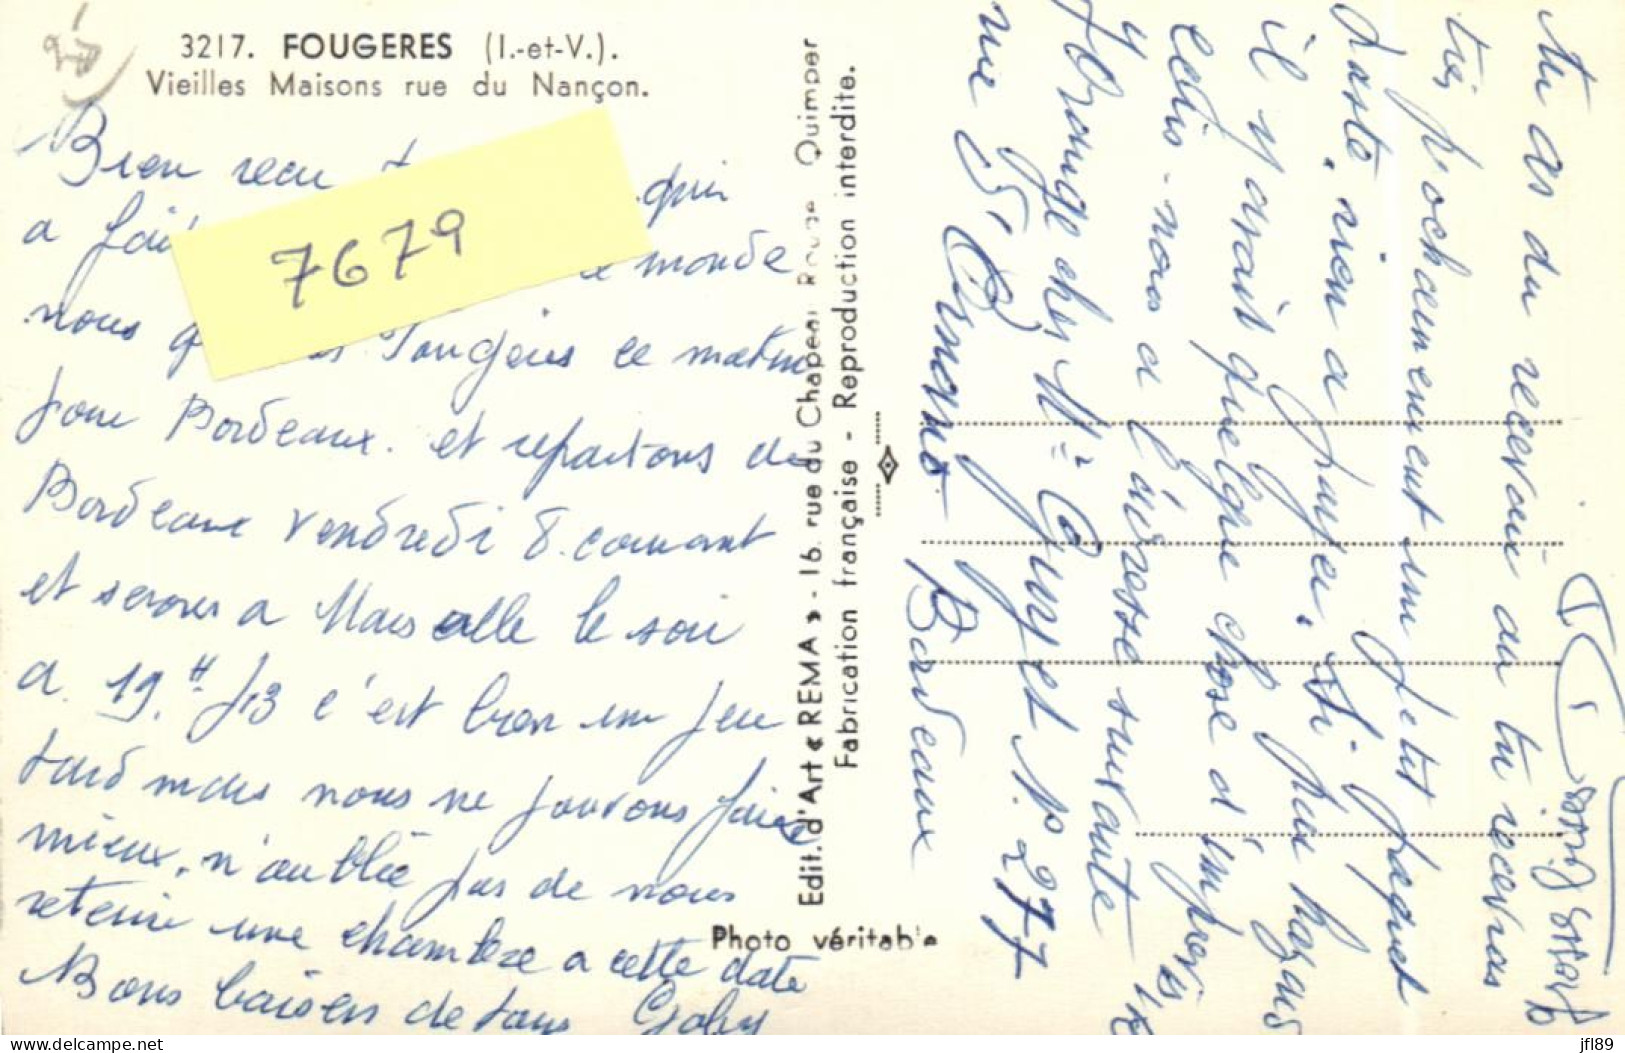 3217. FOUGERES (I.-et-V.).
Vieilles Maisons rue du Nançon.
7679
Bien recu qui
a fai monde
nous Fougères ce matin
pour Bordeaux. et repartons de
Bordeaux vendredi 8. courant
et serons a Marseille le soir
a. 19.H 13 c'est bien un peu
tard mais nous ne pouvons faire
mieux. n'oublie pas de nous
retenir une chambre a cette date
Bons baisers de tous Gaby
Edit. d'Art « REMA » - 16, rue du Chapeau Rouge Quimper
Fabrication française - Reproduction interdite.
Photo véritable
Tu as du recevoir ou tu recevras
très prochainement un petit paquet
Poste, rien a payer. Si par hazard
il y avait quelque chose d'imprévu
écris-nous a l'adresse suivante
chez Mr Guyet N° 277
rue Ornano Bordeaux
bons baisers
delcampe.net
jfl89